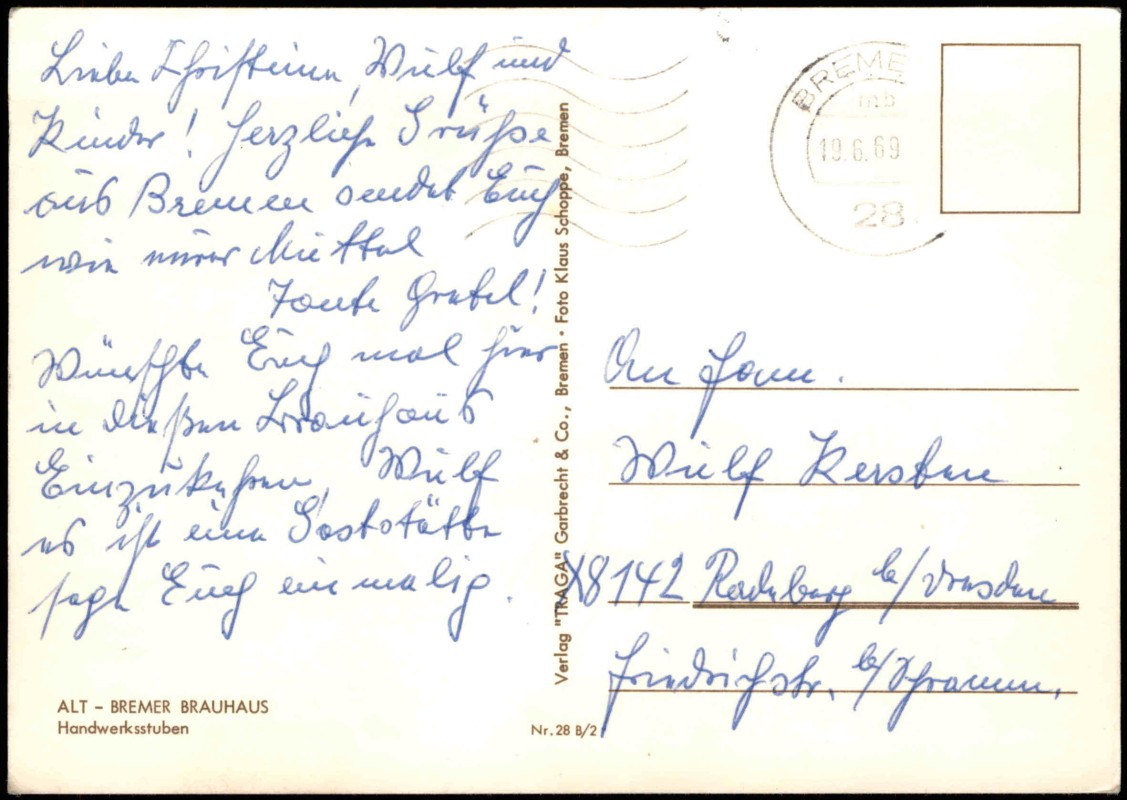 Liebe Christinen, Wulf und
Kinder! Herzliche Grüße
aus Bremen sendet Euch
wie immer Muttel
Tante Gretel!
Wünschte Euch mal hier
in dießen Brauhaus
Einzukehren, Wulf
es ist eine Gaststätte
sage Euch einmalig.
ALT – BREMER BRAUHAUS
Handwerksstuben
Verlag "TRAGA" Garbrecht & Co., Bremen • Foto Klaus Schoppe, Bremen
Nr. 28 B/2
BREME
mb
19.6.69
28
An Fam.
Wulf Kersten
X8142 Radeberg b/Dresden
Friedrichstr. b/Schramm.